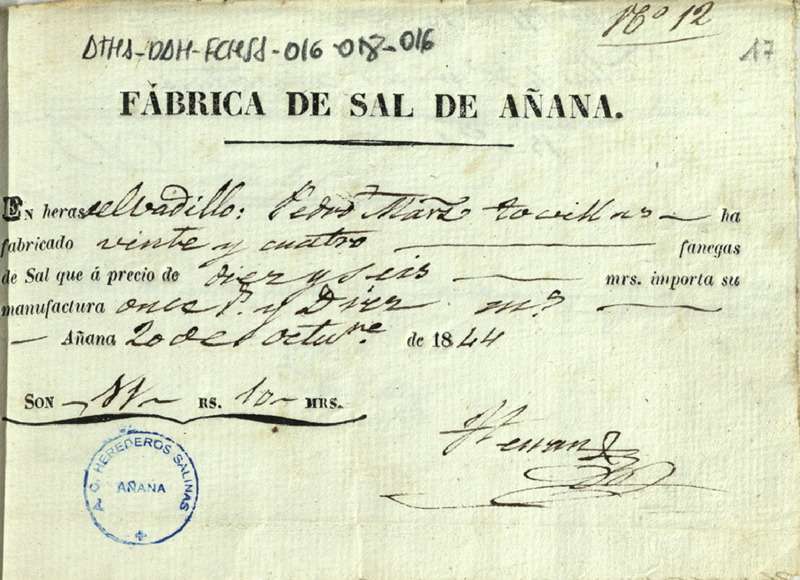 Nº 12
DTHA-DDH-FCHSS-016-018-016
17
FÁBRICA DE SAL DE AÑANA.
EN heras del Vadillo: Pedro Marz tovillas ha
fabricado vinte y cuatro fanegas
de Sal que á precio de diez y seis mrs. importa su
manufactura once rs. y Diez ms
Añana 20 de octure. de 1844
SON 11 RS. 10 MRS.
A. C. HEREDEROS SALINAS
AÑANA